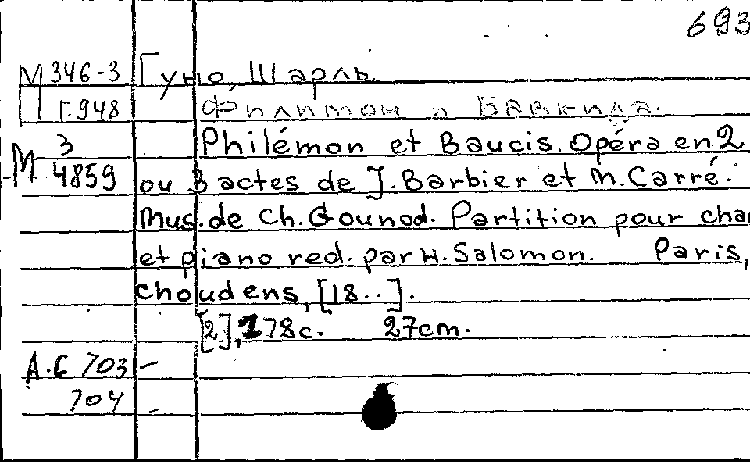 693
М 346-3 Гуно, Шарль
Г.948 Филимон и Бавкида.
М 3 Philémon et Baucis. Opéra en 2
4859 ou 3 actes de J. Barbier et M. Carré.
Mus. de Ch. Gounod. Partition pour cha
et piano red. par H. Salomon. Paris,
Choudens, [18..].
[2], 178c. 27cm.
А.С 703 –
704 –